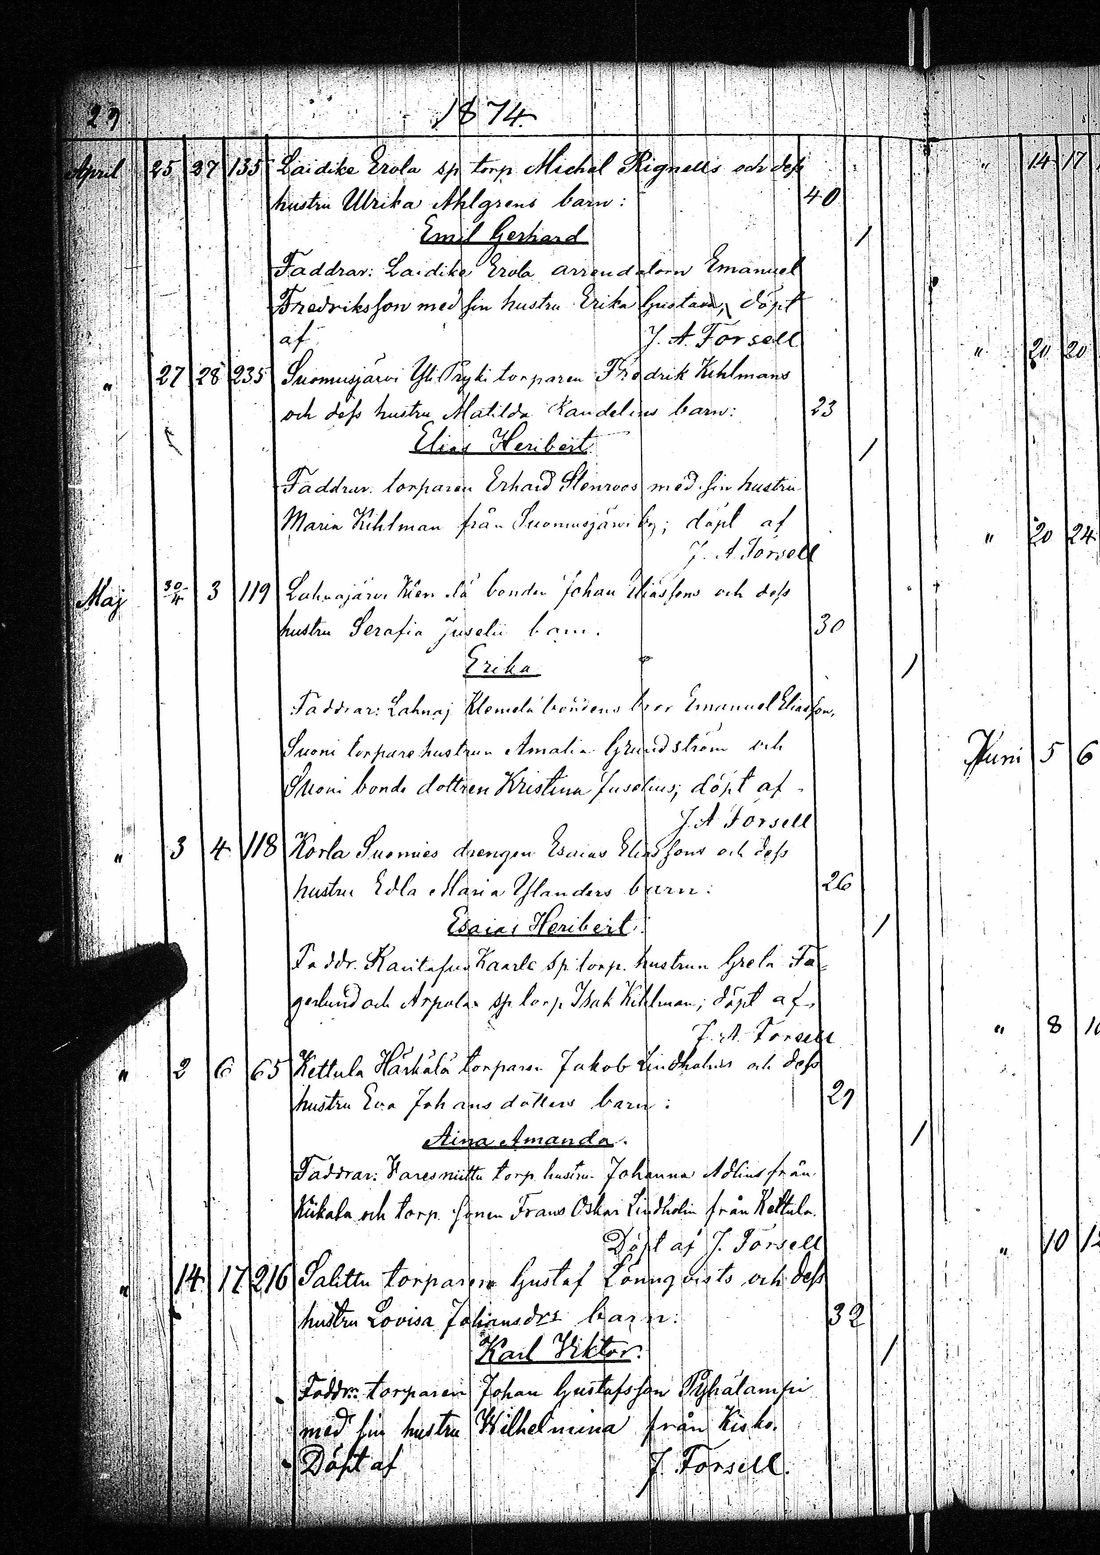 29 1874
April 25 27 135 Laidike Erola sp torp. Michel Rignells och dess
hustru Ulrika Ahlgrens barn: 40
Emil Gerhard
Faddrar: Laidike Erola arrendatorn Emanuel
Fredriksson med sin hustru Erika Gustava, döpt
af J. A. Forsell
" 27 28 235 Suomusjärvi Yli Pryki torparen Fredrik Kihlmans
och dess hustru Matilda Kandelins barn: 23
Elias Heribert
Faddrar. torparen Erhard Stenroos med sin hustru
Maria Kihlman från Suomusjärvi by; döpt af
J. A Forsell
Maj 30/4 3 119 Lahnajärvi bonden Johan Eliassons och dess
hustru Serafia Juselii barn. 30
Erika
Faddrar: Lahnaj Klemelä bondens bror Emanuel Eliasson,
Suoni torparehustrun Amalia Grundström och
Suoni bonde dottren Kristina Juselius; döpt af
J. A Forsell
" 3 4 118 Korla Suomies drengen Esaias Eliassons och dess
hustru Edla Maria Ylanders barn: 26
Esaias Heribert.
Faddr. Kaarla sp torp. hustrun Greta Fa-
gerlund och Arpolan sp torp Isak Kihlman; döpt af
J. A. Forsell
" 2 6 65 Kettula Härkälä torparen Jakob Lindholms och dess
hustru Eva Johansdotters barn: 29
Aina Amanda.
Faddrar: Haresniittu torp. hustru Johanna Adlius från
Kiikala och torp. sonen Frans Oskar Lindholm från Kettula.
Döpt af J. Forsell
" 14 17 216 Salittu torparen Gustaf Lönnqvists och dess
hustru Lovisa Johansdrs barn: 32
Karl Viktor.
Faddr: torparen Johan Gustafsson Pyhälampi
med sin hustru Wilhelmina från Kisko.
Döpt af J. Forsell.
" 14 17
" 20 20
" 20 24
Juni 5 6
" 8 10
" 10 12